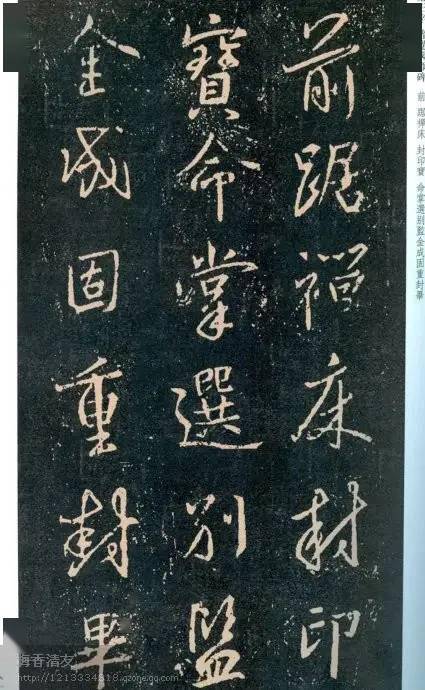 前踞禪床封印
寶命掌選別監
金成固重封畢
碑 前 踞禪床 封印寶 命掌選别監金成固重封畢
梅香清友
http://1213334818.qzone.qq.com